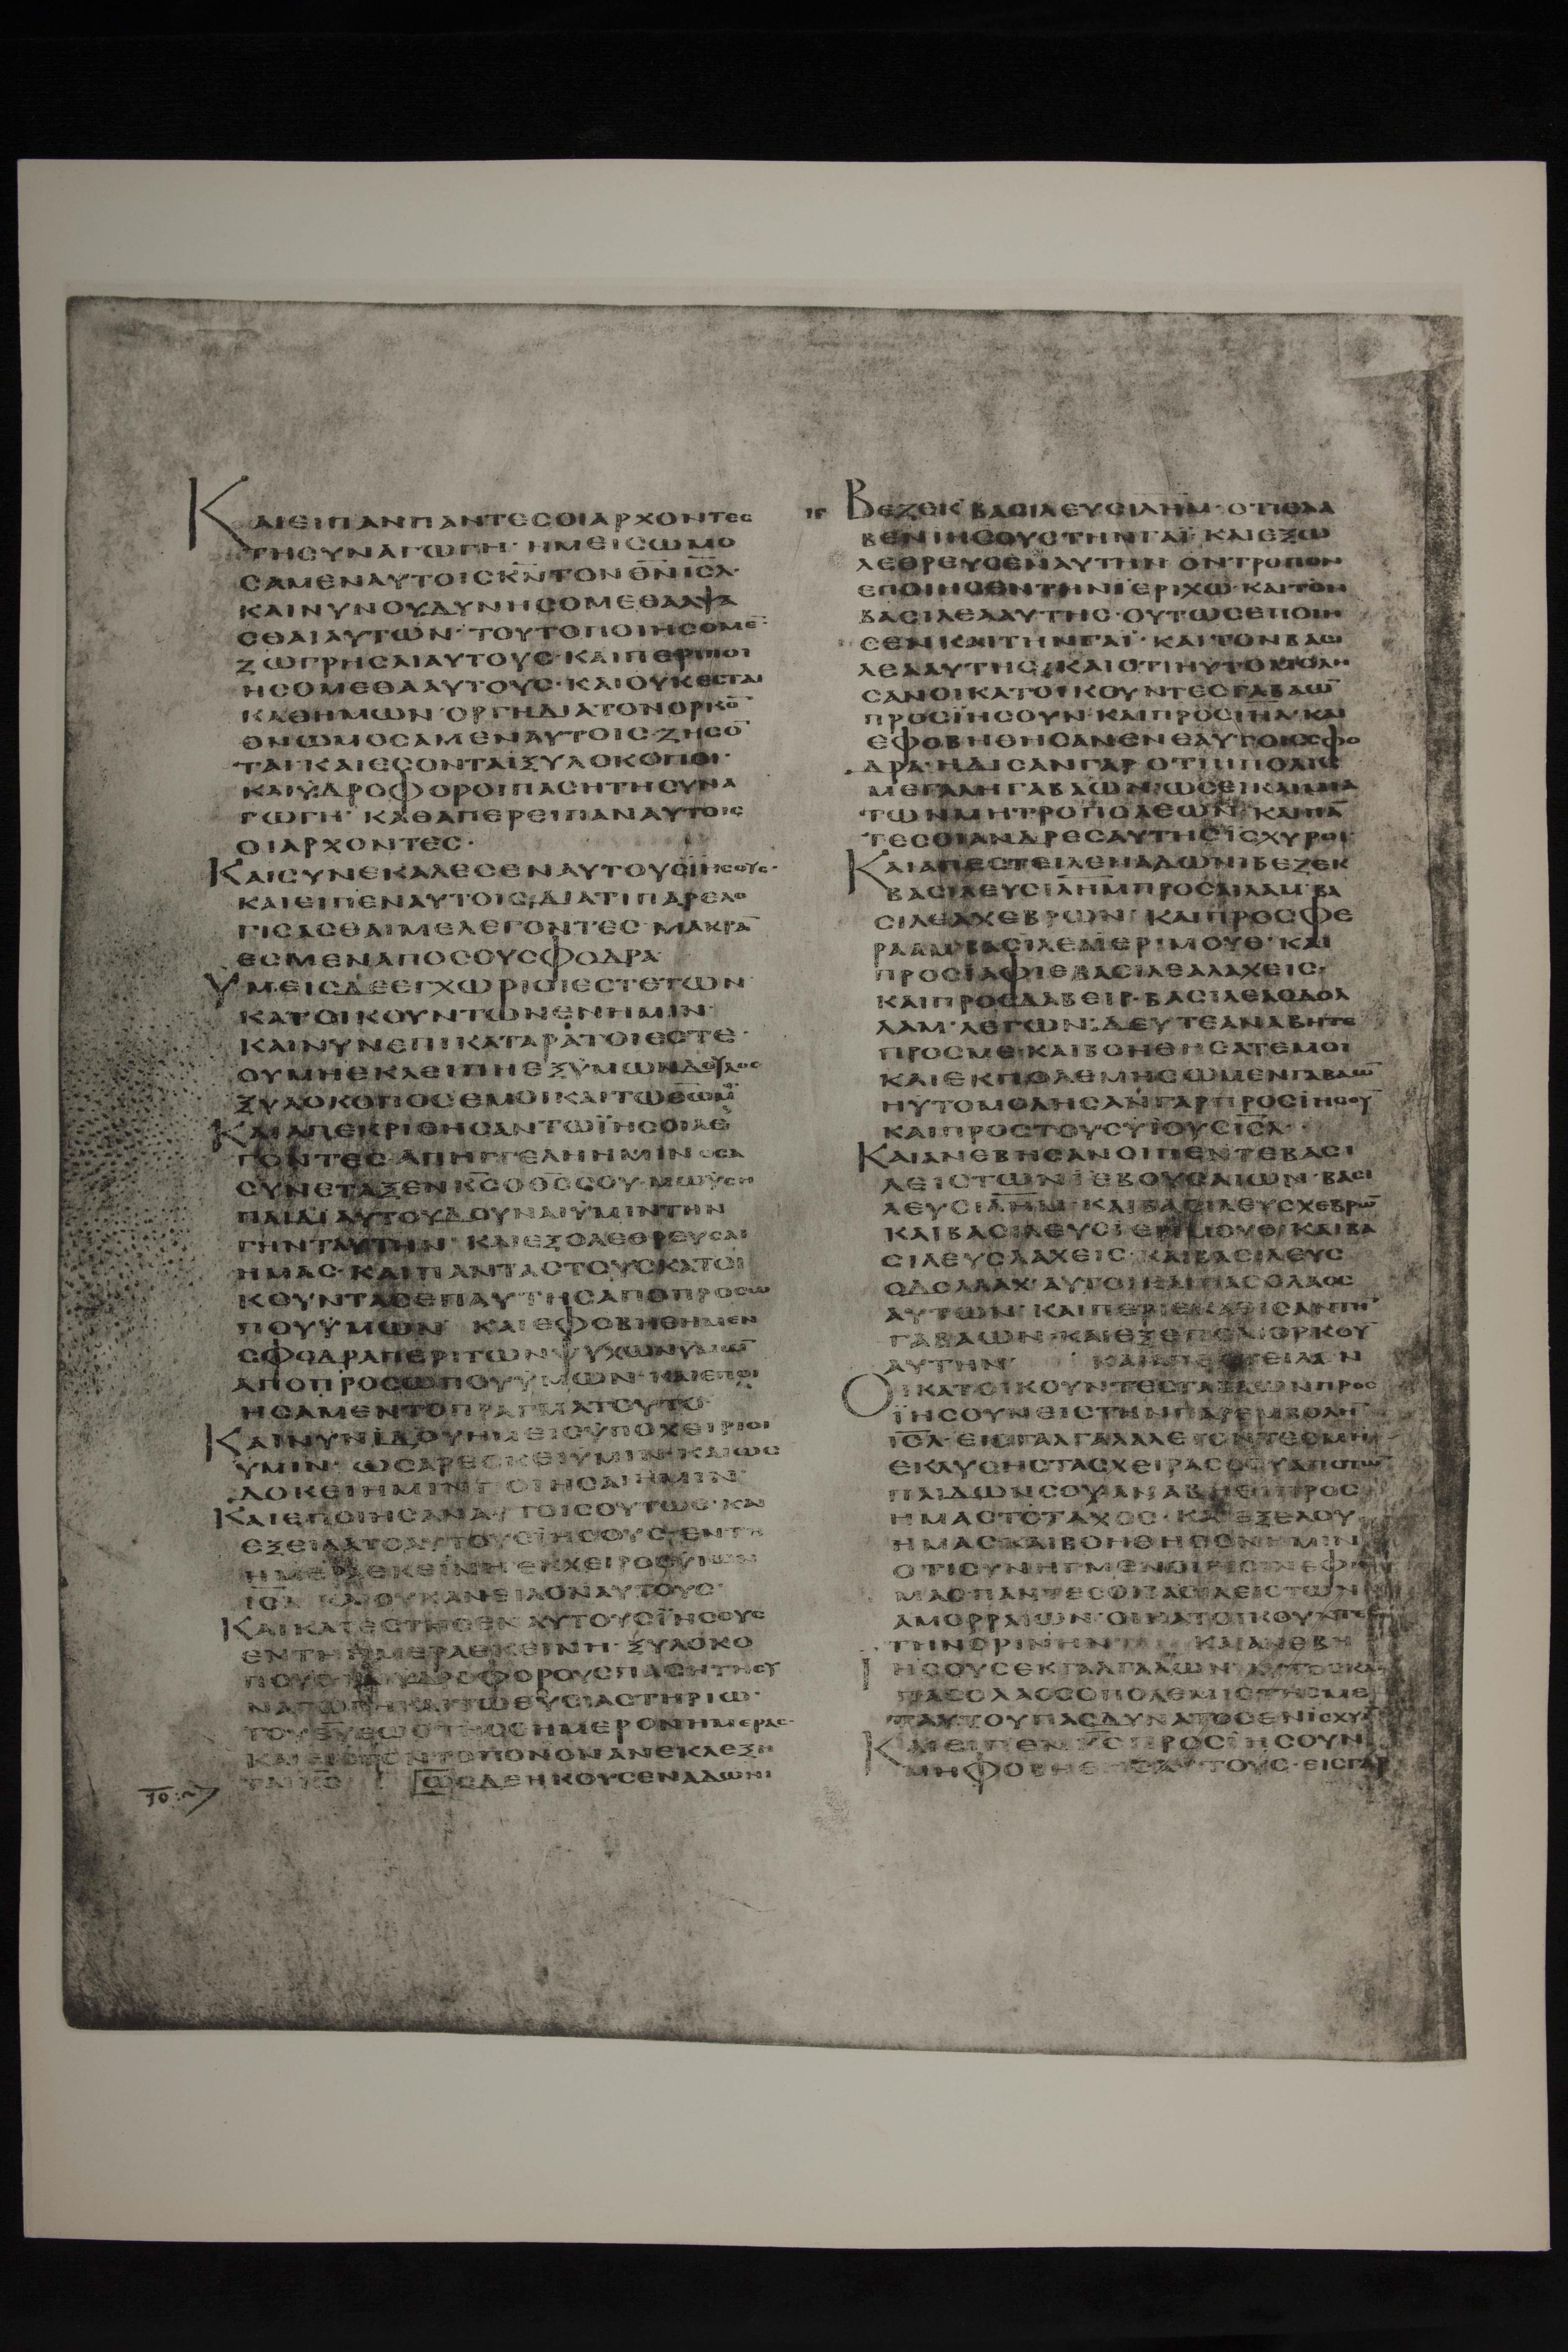 ΚΑΙΕΙΠΑΝΠΑΝΤΕCΟΙΑΡΧΟΝΤΕC
ΤΗCΥΝΑΓΩΓΗ· ΗΜΕΙCΩΜΟ
CΑΜΕΝΑΥΤΟΙCΚ̅Ν̅ΤΟΝΘ̅Ν̅Ι̅C̅Λ̅·
ΚΑΙΝΥΝΟΥΔΥΝΗCΟΜΕΘΑΑΨΑ
CΘΑΙΑΥΤΩΝ· ΤΟΥΤΟΠΟΙΗCΟΜΕ̅
ΖΩΓΡΗCΑΙΑΥΤΟΥC· ΚΑΙΠΕΡΙΠΟΙ
ΗCΟΜΕΘΑΑΥΤΟΥC· ΚΑΙΟΥΚΕCΤΑΙ
ΚΑΘΗΜΩΝ ΟΡΓΗΔΙΑΤΟΝΟΡΚΟ̅
ΟΝΩΜΟCΑΜΕΝΑΥΤΟΙC· ΖΗCΟ̅
ΤΑΙ· ΚΑΙΕCΟΝΤΑΙΞΥΛΟΚΟΠΟΙ·
ΚΑΙΫΔΡΟΦΟΡΟΙΠΑCΗΤΗCΥΝΑ
ΓΩΓΗ· ΚΑΘΑΠΕΡΕΙΠΑΝΑΥΤΟΙC
ΟΙΑΡΧΟΝΤΕC·
ΚΑΙCΥΝΕΚΑΛΕCΕΝΑΥΤΟΥCΪΗCΟΥC·
ΚΑΙΕΙΠΕΝΑΥΤΟΙC, ΔΙΑΤΙΠΑΡΕΛΟ
ΓΙCΑCΘΑΙΜΕΛΕΓΟΝΤΕC· ΜΑΚΡΑ̅
ΕCΜΕΝΑΠΟCΟΥCΦΟΔΡΑ·
ΥΜΕΙCΔΕΕΓΧΩΡΙΟΙΕCΤΕΤΩΝ
ΚΑΤΟΙΚΟΥΝΤΩΝΕΝΗΜΙΝ·
ΚΑΙΝΥΝΕΠΙΚΑΤΑΡΑΤΟΙΕCΤΕ·
ΟΥΜΗΕΚΛΕΙΠΗΕΞΥΜΩΝΔΟΥΛΟC
ΞΥΛΟΚΟΠΟCΕΜΟΙΚΑΙΤΩΘ̅Ω̅ΜΟΥ
ΚΑΙΑΠΕΚΡΙΘΗCΑΝΤΩΪΗCΟΙΛΕ
ΓΟΝΤΕC· ΑΠΗΓΓΕΛΗΗΜΙΝΟCΑ
CΥΝΕΤΑΞΕΝΚ̅C̅ΟΘ̅C̅CΟΥ· ΜΩΫCΗ
ΠΑΙΔΙΑΥΤΟΥΔΟΥΝΑΙΫΜΙΝΤΗΝ
ΓΗΝΤΑΥΤΗΝ· ΚΑΙΕΞΟΛΕΘΡΕΥCΑΙ
ΗΜΑC· ΚΑΙΠΑΝΤΑCΤΟΥCΚΑΤΟΙ
ΚΟΥΝΤΑCΕΠΑΥΤΗCΑΠΟΠΡΟCΩ
ΠΟΥΫΜΩΝ· ΚΑΙΕΦΟΒΗΘΗΜΕΝ
CΦΟΔΡΑΠΕΡΙΤΩΝΨΥΧΩΝΗΜΩ̅
ΑΠΟΠΡΟCΩΠΟΥΫΜΩΝ· ΚΑΙΕΠΟΙ
ΗCΑΜΕΝΤΟΠΡΑΓΜΑΤΟΥΤΟ·
ΚΑΙΝΥΝΙΔΟΥΗΜΕΙCΫΠΟΧΕΙΡΙΟΙ
ΫΜΙΝ· ΩCΑΡΕCΚΕΙΫΜΙΝ· ΚΑΙΩC
ΔΟΚΕΙΗΜΙΝΠΟΙΗCΑΙΗΜΙΝ·
ΚΑΙΕΠΟΙΗCΑΝΑΥΤΟΙCΟΥΤΩC· ΚΑΙ
ΕΞΕΙΛΑΤΟΑΥΤΟΥCΪΗCΟΥC, ΕΝΤΗ
ΗΜΕΡΑΕΚΕΙΝΗΕΚΧΕΙΡΟCΫΙΩΝ
Ι̅C̅Λ̅ ΚΑΙΟΥΚΑΝΕΙΛΟΝΑΥΤΟΥC·
ΚΑΙΚΑΤΕCΤΗCΕΝΑΥΤΟΥCΪΗCΟΥC
ΕΝΤΗΗΜΕΡΑΕΚΕΙΝΗ· ΞΥΛΟΚΟ
ΠΟΥCΚΑΙΥΔΡΟΦΟΡΟΥCΠΑCΗΤΗCΥ
ΝΑΓΩΓΗΚΑΙΤΩΘΥCΙΑCΤΗΡΙΩ·
ΤΟΥΘ̅Υ̅ΕΩCΤΗCCΗΜΕΡΟΝΗΜΕΡΑC·
ΚΑΙΕΙCΤΟΝΤΟΠΟΝΟΝΑΝΕΚΛΕΞΗ
ΤΑΙΚ̅C̅ ΩCΔΕΗΚΟΥCΕΝΑΔΩΝΙ
ΙΓ ΒΕΖΕΚ ΒΑCΙΛΕΥCΙΛΗΜ· ΟΤΙΕΛΑ
ΒΕΝΙΗCΟΥCΤΗΝΓΑΪ· ΚΑΙΕΞΩ
ΛΕΘΡΕΥCΕΝΑΥΤΗΝ· ΟΝΤΡΟΠΟΝ
ΕΠΟΙΗCΕΝΤΗΝΪΕΡΙΧΩ· ΚΑΙΤΟΝ
ΒΑCΙΛΕΑΑΥΤΗC· ΟΥΤΩCΕΠΟΙΗ
CΕΝΚΑΙΤΗΝΓΑΪ· ΚΑΙΤΟΝΒΑCΙ
ΛΕΑΑΥΤΗC, ΚΑΙΟΤΙΗΥΤΟΜΟΛΗ
CΑΝΟΙΚΑΤΟΙΚΟΥΝΤΕCΓΑΒΑΩ̅
ΠΡΟCΪΗCΟΥΝ· ΚΑΙΠΡΟCΙ̅Η̅Λ̅· ΚΑΙ
ΕΦΟΒΗΘΗCΑΝΕΝΕΑΥΤΟΙCCΦΟ
ΔΡΑ· ΗΔΙCΑΝΓΑΡΟΤΙΠΟΛΙC
ΜΕΓΑΛΗΓΑΒΑΩΝ· ΩCΕΙΚΑΙΜΙΑ
ΤΩΝΜΗΤΡΟΠΟΛΕΩΝ· ΚΑΙΠΑ̅
ΤΕCΟΙΑΝΔΡΕCΑΥΤΗCΪCΧΥΡΟΙ·
ΚΑΙΑΠΕCΤΕΙΛΕΝΑΔΩΝΙΒΕΖΕΚ
ΒΑCΙΛΕΥCΙ̅Λ̅Η̅Μ̅ΠΡΟCΑΙΛΑΜ· ΒΑ
CΙΛΕΑΧΕΒΡΩΝ· ΚΑΙΠΡΟCΦΕ
ΡΑΑΜΒΑCΙΛΕΑΪΕΡΙΜΟΥΘ· ΚΑΙ
ΠΡΟCΪΑΦΙΕΒΑCΙΛΕΑΛΑΧΕΙC·
ΚΑΙΠΡΟCΔΑΒΕΙΡ· ΒΑCΙΛΕΑΟΔΟΛ
ΛΑΜ· ΛΕΓΩΝ· ΔΕΥΤΕΑΝΑΒΗΤΕ
ΠΡΟCΜΕ· ΚΑΙΒΟΗΘΗCΑΤΕΜΟΙ
ΚΑΙΕΚΠΟΛΕΜΗCΩΜΕΝΓΑΒΑΩ̅
ΗΥΤΟΜΟΛΗCΑΝΓΑΡΠΡΟCΪΗCΟΥ̅
ΚΑΙΠΡΟCΤΟΥCΥΪΟΥCΙ̅C̅Λ̅·
ΚΑΙΑΝΕΒΗCΑΝΟΙΠΕΝΤΕΒΑCΙ
ΛΕΙCΤΩΝΙΕΒΟΥCΑΙΩΝ· ΒΑCΙ
ΛΕΥCΙ̅Λ̅Η̅Μ̅· ΚΑΙΒΑCΙΛΕΥCΧΕΒΡΩ̅
ΚΑΙΒΑCΙΛΕΥCΪΕΡΙΜΟΥΘ· ΚΑΙΒΑ
CΙΛΕΥCΛΑΧΕΙC· ΚΑΙΒΑCΙΛΕΥC
ΟΔΟΛΛΑΜ· ΑΥΤΟΙΚΑΙΠΑCΟΛΑΟC
ΑΥΤΩΝ· ΚΑΙΠΕΡΙΕΚΑΘΙCΑΝΤΗ̅
ΓΑΒΑΩΝ· ΚΑΙΕΞΕΠΟΛΙΟΡΚΟΥ̅
ΑΥΤΗΝ· ΚΑΙΑΠΕCΤΕΙΛΑΝ
ΟΙΚΑΤΟΙΚΟΥΝΤΕCΓΑΒΑΩΝΠΡΟC
ΪΗCΟΥΝΕΙCΤΗΝΠΑΡΕΜΒΟΛΗ̅
Ι̅C̅Λ̅· ΕΙCΓΑΛΓΑΛΑΛΕΓΟΝΤΕCΜΗ
ΕΚΛΥCΗCΤΑCΧΕΙΡΑCCΟΥΑΠΟΤΩ̅
ΠΑΙΔΩΝCΟΥ· ΑΝΑΒΗΘΙΠΡΟC
ΗΜΑCΤΟΤΑΧΟC· ΚΑΙΕΞΕΛΟΥ
ΗΜΑCΚΑΙΒΟΗΘΗCΟΝΗΜΙΝ
ΟΤΙCΥΝΗΓΜΕΝΟΙΕΙCΙΝΕΦΗ
ΜΑCΠΑΝΤΕCΟΙΒΑCΙΛΕΙCΤΩΝ
ΑΜΟΡΡΑΙΩΝ· ΟΙΚΑΤΟΙΚΟΥΝΤΕC
ΤΗΝΟΡΙΝΗΝ ΚΑΙΑΝΕΒΗ
ΙΗCΟΥCΕΚΓΑΛΓΑΛΩΝ· ΑΥΤΟCΚΑΙ
ΠΑCΟΛΑΟCΟΠΟΛΕΜΙCΤΗCΜΕ
ΤΑΥΤΟΥΠΑCΔΥΝΑΤΟCΕΝΙCΧΥΪ
ΚΑΙΕΙΠΕΝΚ̅C̅ΠΡΟCΪΗCΟΥΝ
ΜΗΦΟΒΗΘΗCΑΥΤΟΥC· ΕΙCΓΑΡ